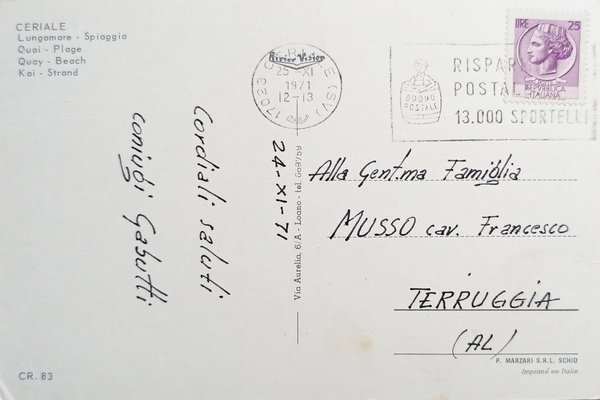 CERIALE
Lungomare - Spiaggia
Quai - Plage
Quay - Beach
Kai - Strand
Cordiali saluti
coniugi Gabutti
24-XI-71
Rivier Vision
Via Aurelia, 6/A - Loano - tel. 669759
17023 CERIALE (SV)
25-XI
1971
12-13
BUONO
POSTALE
RISPAR
POSTAL
13.000 SPORTELLI
LIRE 25
REPUBBLICA
ITALIANA
Alla Gent.ma Famiglia
MUSSO cav. Francesco
TERRUGGIA
(AL)
P. MARZARI S.R.L. SCHIO
Imprimé en Italie
CR. 83